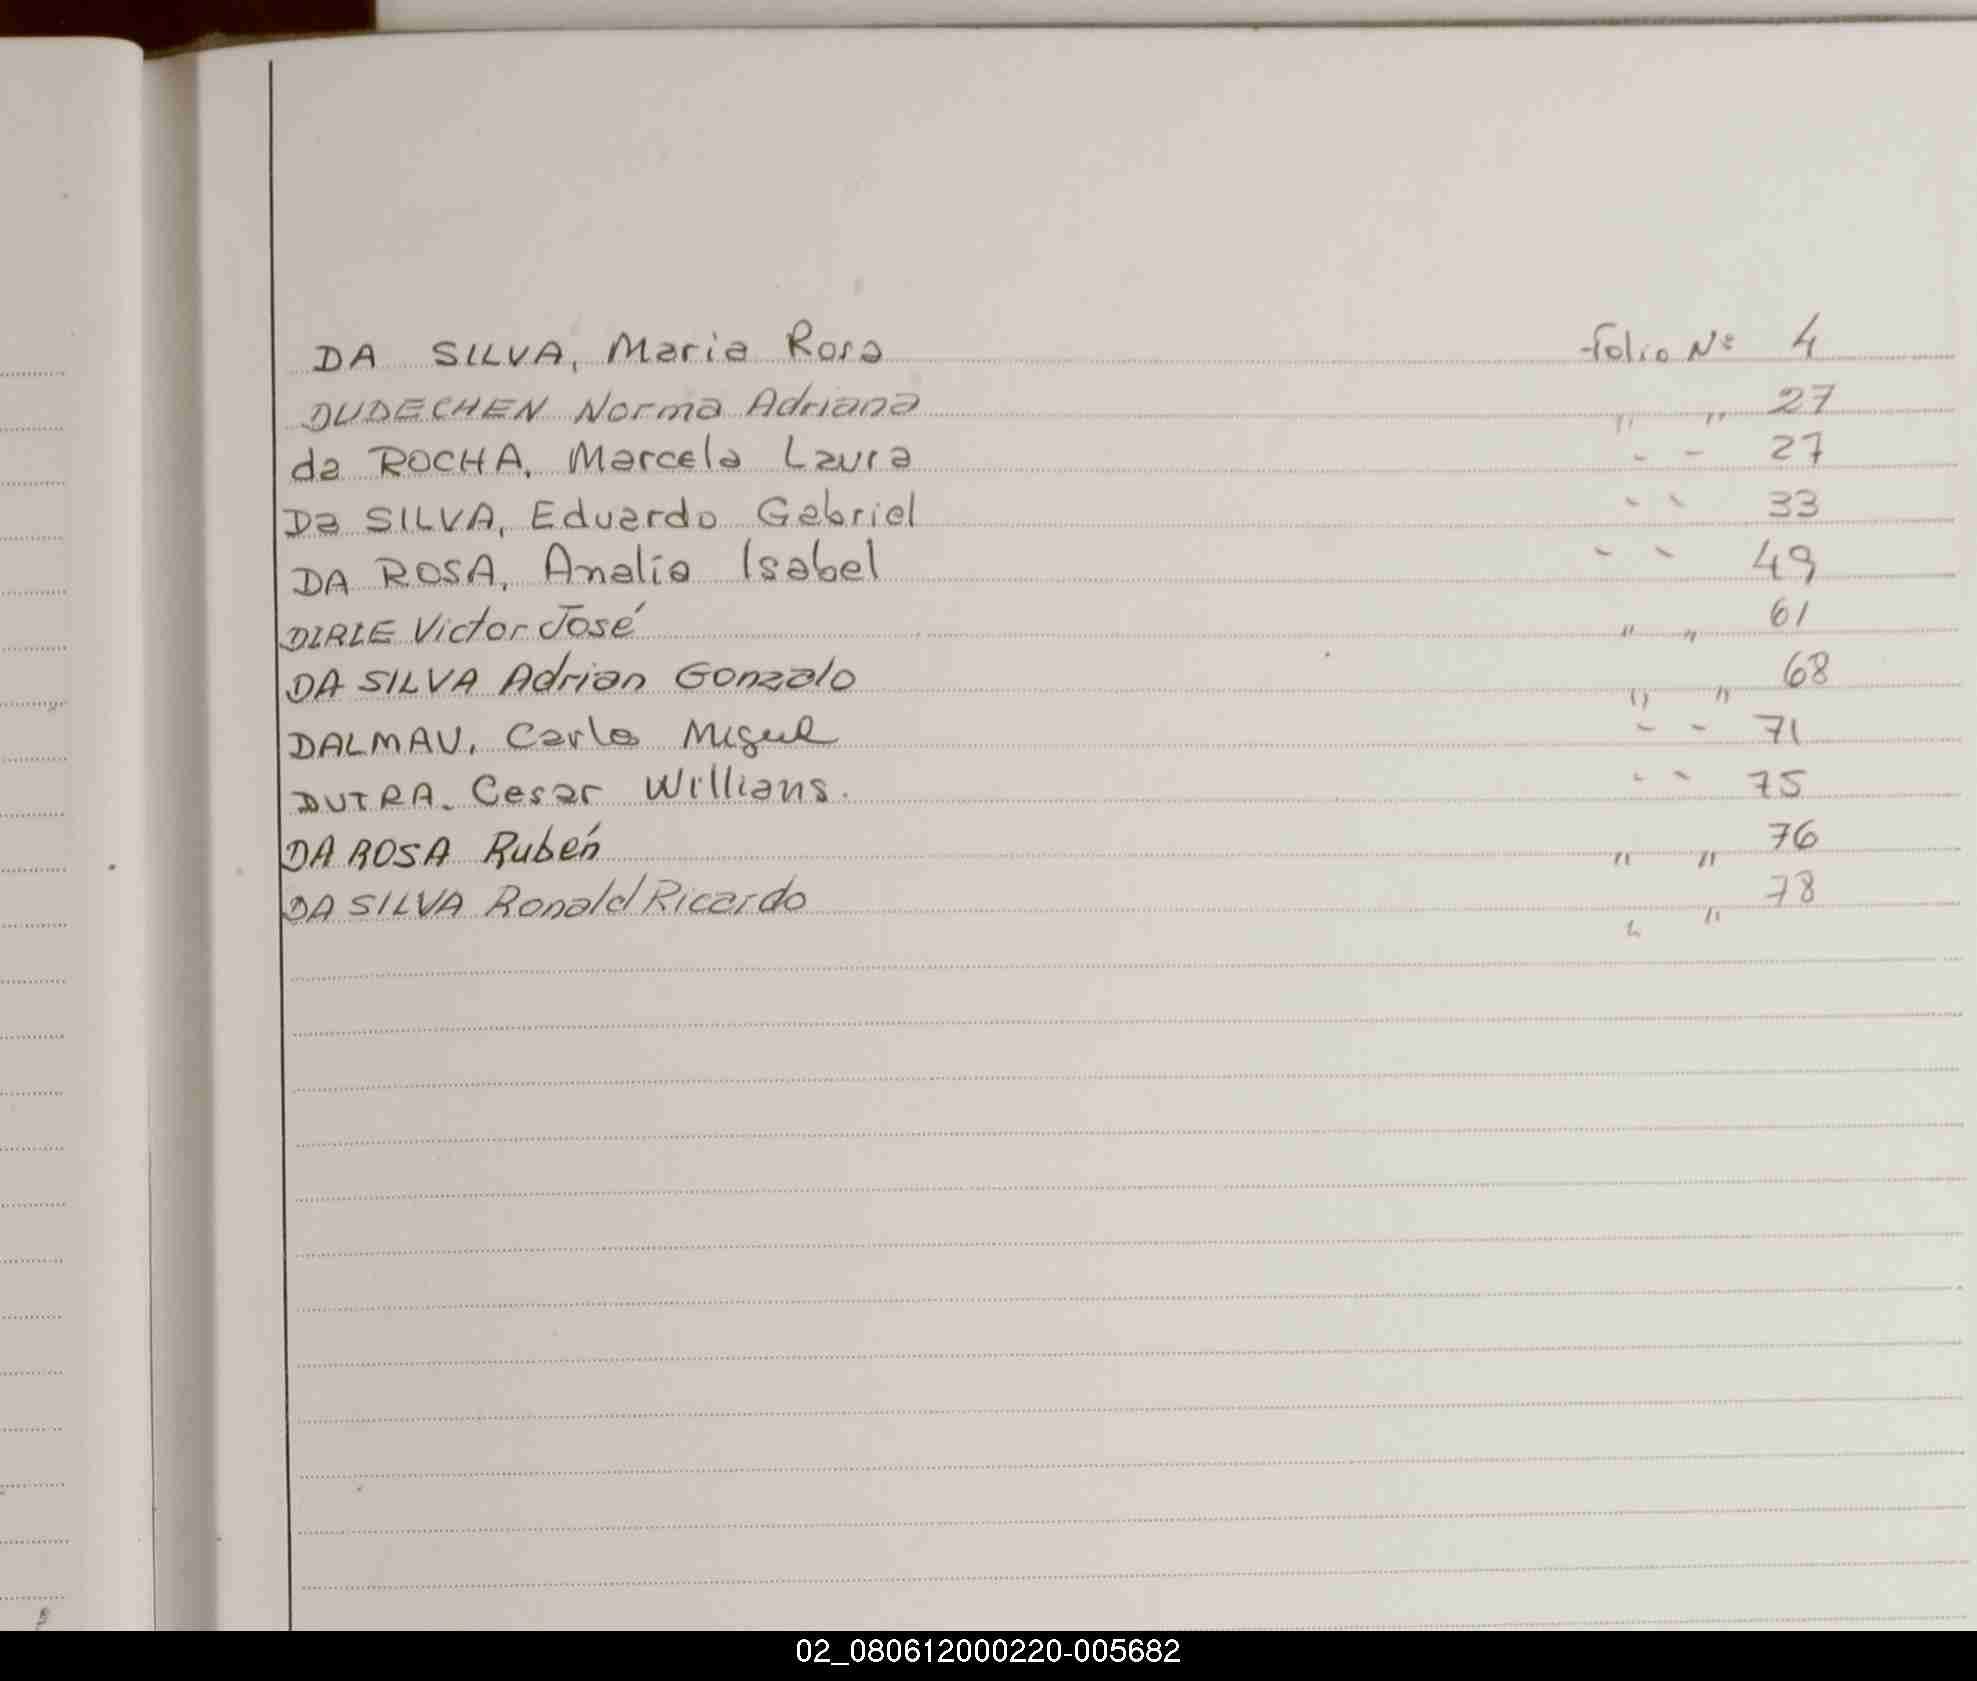 DA SILVA, Maria Rosa Folio Nº 4
DUDECHEN Norma Adriana " " 27
da ROCHA, Marcela Laura - - 27
Da SILVA, Eduardo Gabriel " " 33
DA ROSA, Analia Isabel " " 49
DIRIE Victor José " " 61
DA SILVA Adrian Gonzalo " " 68
DALMAU, Carlos Miguel - - 71
DUTRA. Cesar Willians. " " 75
DA ROSA Rubén " " 76
DA SILVA Ronald Ricardo " " 78
02_080612000220-005682